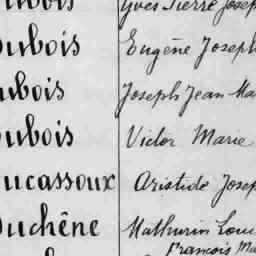 ubois Yves Pierre Josep
ubois Eugène Joseph
ubois Joseph Jean Ma
ubois Victor Marie
ucassoux Aristide Josep
uchêne Mathurin Loui
François Ma